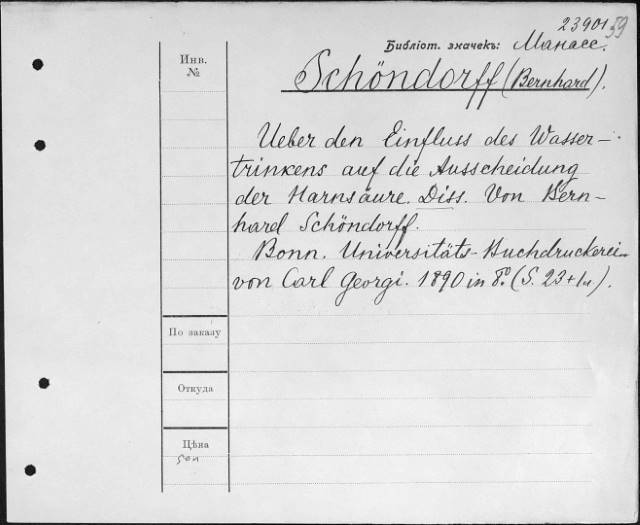 23901 59
Библіот. значекъ: Манасе.
Инв.
№
Schöndorff (Bernhard).
Ueber den Einfluss des Wasser-
trinkens auf die Ausscheidung
der Harnsäure. Diss. Von Bern-
hard Schöndorff.
Bonn. Universitäts-Buchdruckerei
von Carl Georgi. 1890 in 8º. (S. 23+1н).
По заказу
Откуда
Цѣна